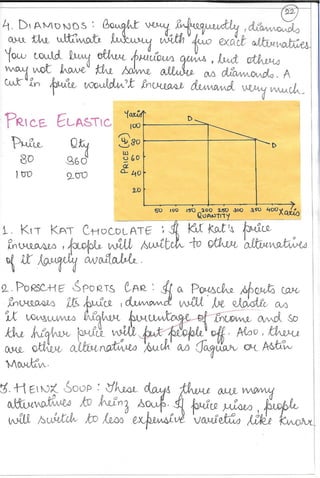 22
4. DIAMONDS : Bought very infrequently, diamonds
are the ultimate luxury with few exact alternatives.
You could buy other precious gems, but others
may not have the same allure as diamonds. A
cut in price wouldn't increase demand very much.
PRICE ELASTIC
Price Qty
80 360
100 200
Yaxis
PRICE (£)
100
80
60
40
20
D
D
50 100 150 200 250 300 350 400 Xaxis
QUANTITY
1. KIT KAT CHOCOLATE : If Kit Kat's price
increases, people will switch to other alternatives
if it largely available.
2. PORSCHE SPORTS CAR : If a Porsche sports car
increases its price, demand will be elastic as
it consumes higher percentage of income and so
the higher price will put people off. Also, there
are other alternatives such as Jaguar or Astin
Martin.
3. HEINZ SOUP : These days there are many
alternatives to heinz soup. If price rises, people
will switch to less expensive varieties like Knorr.